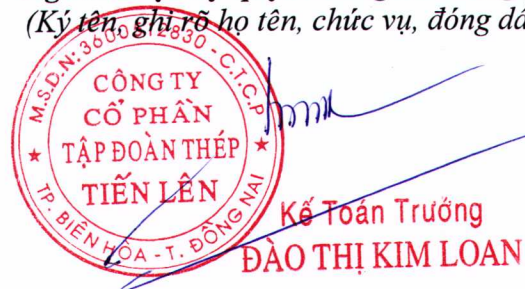 (Ký tên, ghi rõ họ tên, chức vụ, đóng dấ
M.S.D.N: - C.T.C.P
CÔNG TY
CỔ PHẦN
TẬP ĐOÀN THÉP
TIẾN LÊN
TP. BIÊN HÒA - T. ĐỒNG NAI
Kế Toán Trưởng
ĐÀO THỊ KIM LOAN